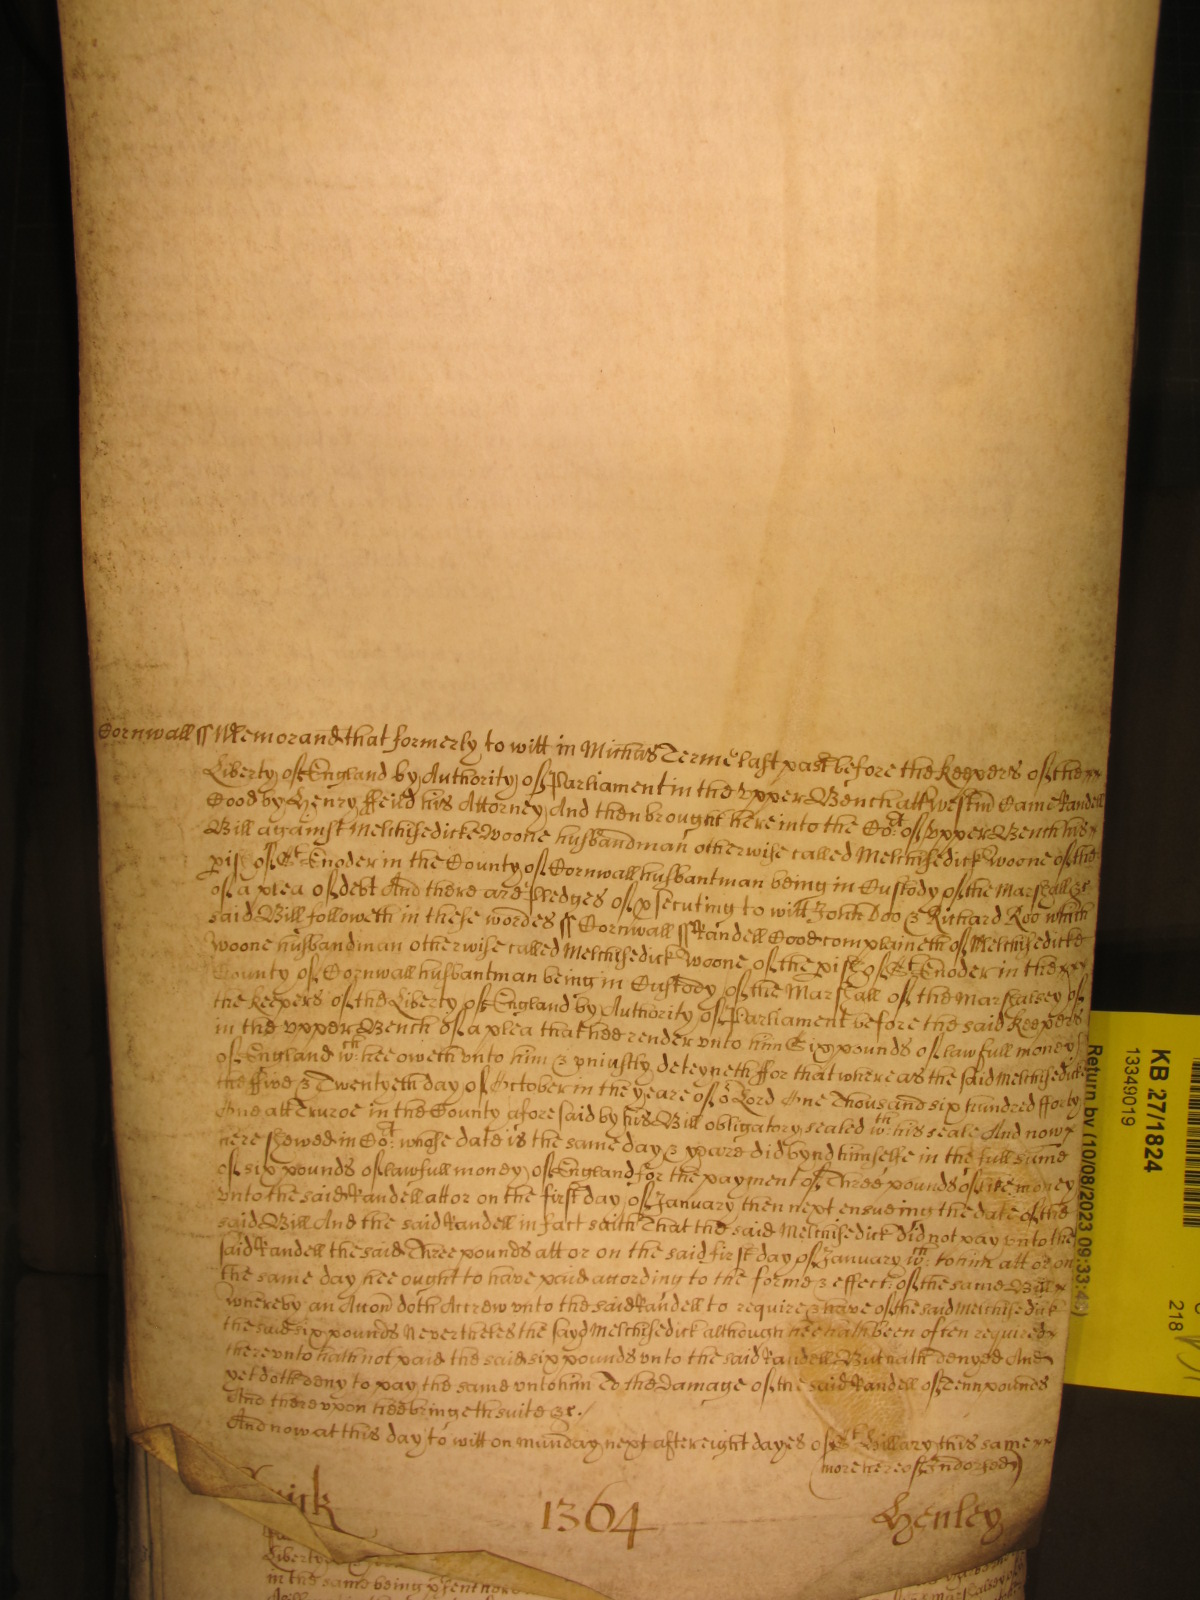 Cornwall ss Memorand that formerly to witt in Michas Terme last past before the Keepers of the
Liberty of England by Authority of Parliament in the upper Bench att Westm Came Randell
Cood by Henry ffeild his Attorney And then brought here into the Cot of upper Bench his
Bill against Melchisedicke Woone husbandman otherwise called Melchisedick Woone of the
pish of St Enoder in the County of Cornwall husbantman being in Custody of the Marshall &c
of a plea of debt And there are Pledges of psecuting to witt John Doo & Richard Roo which
said Bill followeth in these wordes ss Cornwall ss Randell Cood complaineth of Melchisedicke
Woone husbandman otherwise called Melchisedick Woone of the pish of St Enoder in the
County of Cornwall husbantman being in Custody of the Marshall of the Marshalsey of
the Keepers of the Liberty of England by Authority of Parliament before the said Keepers
in the upper Bench of a plea that hee render unto him Six pounds of lawfull money
of England wch hee oweth unto him & uniustly deteyneth ffor that whereas the said Melchisedicke
the ffive & Twentyeth day of October in the yeare of or Lord One Thousand six hundred fforty
One att Truroe in the County aforesaid by his Bill obligatory sealed wth his seale And now
here shewed in Cot whose date is the same day & yeare did bynd himselfe in the full sume
of six pounds of lawfull money of England for the payment of Three pounds of like money
unto the said Randell att or on the first day of January then next ensueing the date of the
said Bill And the said Randell in fact saith That the said Melchisedick did not pay unto the
said Randell the said Three pounds att or on the said first day of January wch to him att or on
the same day hee ought to have paid according to the forme & effect of the same Bill
whereby an Accon doth Accrew unto the said Randell to require & have of the said Melchisedick
the said six pounds Neverthelesthe sayd Melchisedick although hee hath been often required
thereunto hath not paid the said six pounds unto the said Randell But hath denyed And
yet doth deny to pay the same unto him To the Damage of the said Randell of Tenn pounds
And thereupon hee bringeth suite &c.
And now at this day to witt on munday next after eight dayes of St Hillary this same
(more hereof Endorsed)
1364
Henley
Liberty
in the same being psent
Return by (10/08/2023 09:33:4
13349019
KB 27/1824
218